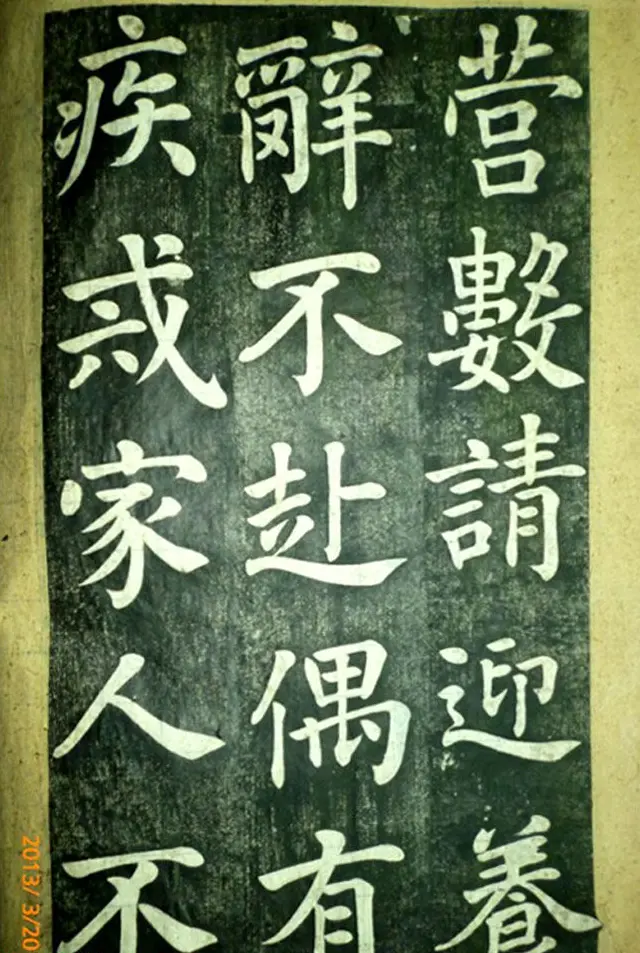 营數請迎養
辭不赴偶有
疾戒家人不
2013/ 3/20